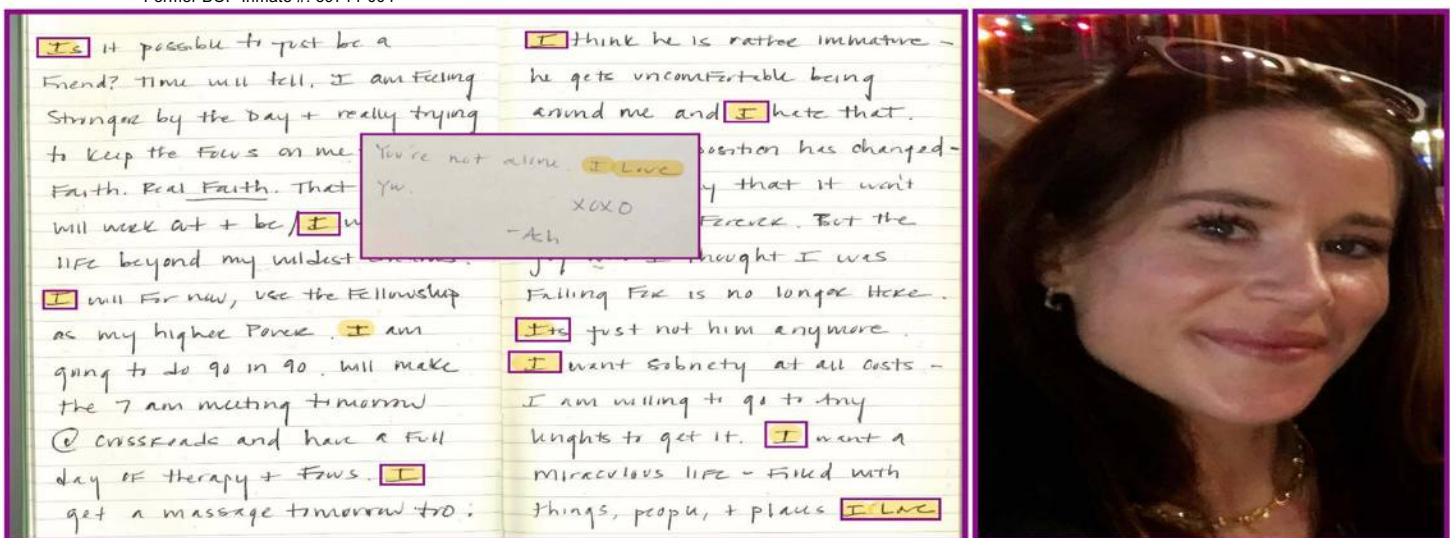 Former BOP Inmate #:
Is it possible to just be a
Friend? Time will tell. I am Feeling
Stronger by the Day + really trying
to keep the Focus on me
Faith. Real Faith. That
will work at + be / I
life beyond my wildest
I will For now, use the Fellowship
as my higher Power. I am
going to do 90 in 90. will make
the 7 am meeting tomorrow
@ Crossroads and have a Full
day of therapy + Focus. I
get a massage tomorrow too.
You're not alone. I Love
You.
XOXO
-Ash
I think he is rather immature -
he gets uncomfortable being
around me and I hate that.
position has changed -
that it won't
Forever. But the
thought I was
Falling For is no longer Here.
Its just not him anymore.
I want sobriety at all costs -
I am willing to go to Any
lenghts to get it. I want a
miraculous life - Filled with
things, people, + places I Love